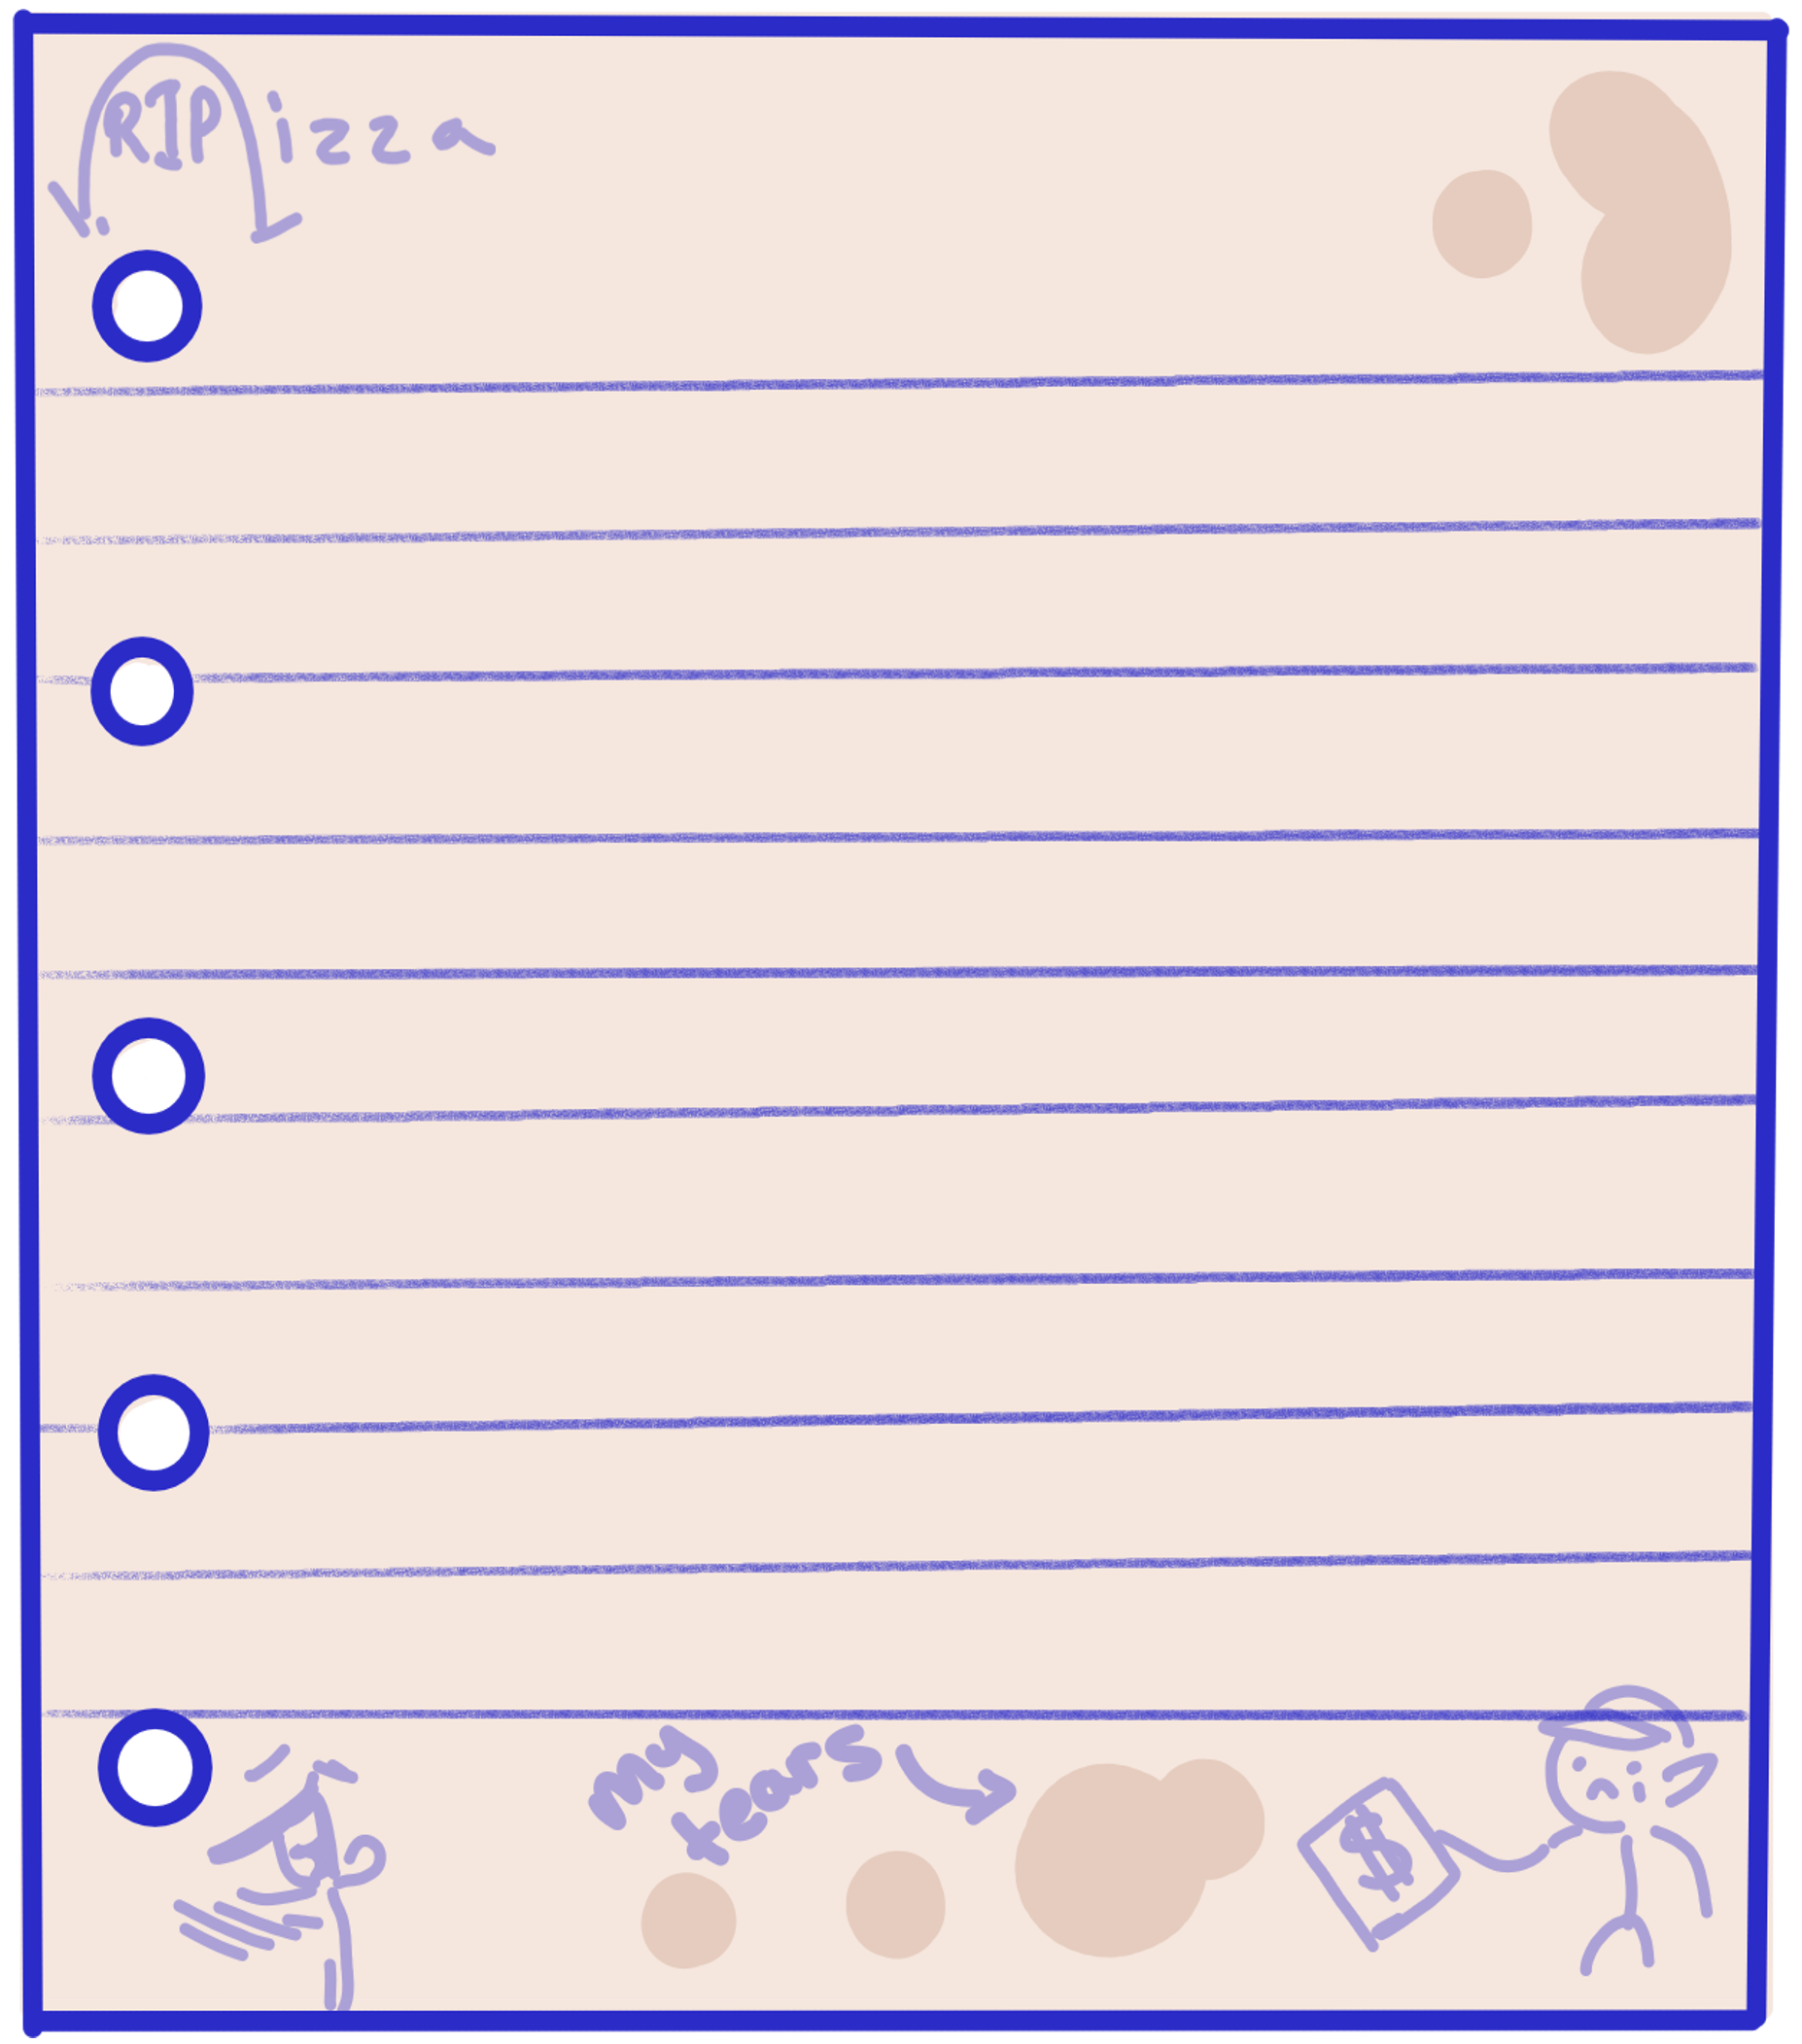 RIPizza
my
tears
$